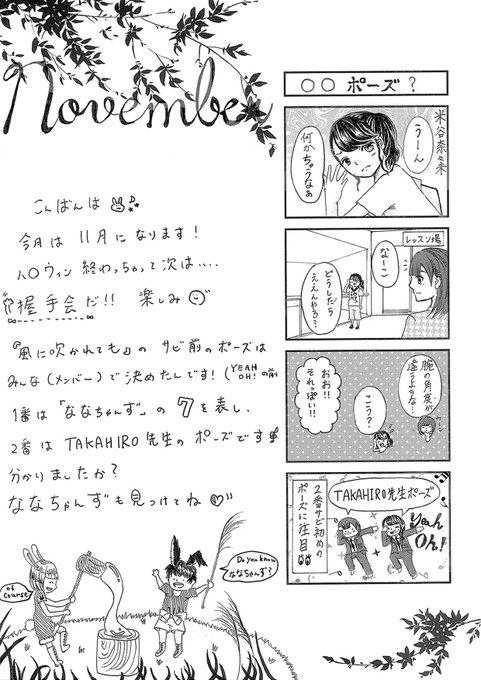 November
こんばんは
今月は11月になります!
ハロウィン終わっちゃって次は....
握手会だ!! 楽しみ
『風に吹かれても』のサビ前のポーズは
みんな(メンバー)で決めたんです!(YEAH OH!の前
1番は「ななちゃんず」の7を表し、
2番はTAKAHIRO先生のポーズです
分かりましたか?
ななちゃんずも見つけてね♡
of course
Do you know ななちゃんず?
○○ポーズ?
米谷奈々未
うーん
何かちゃうなぁ
レッスン場
なーこ
どうしたらええんやろ?
腕の角度が違うような…
こう?
おお!!それっぽい!!
TAKAHIRO先生ポーズ
2番サビ初めのポーズに注目
Yeah Oh!